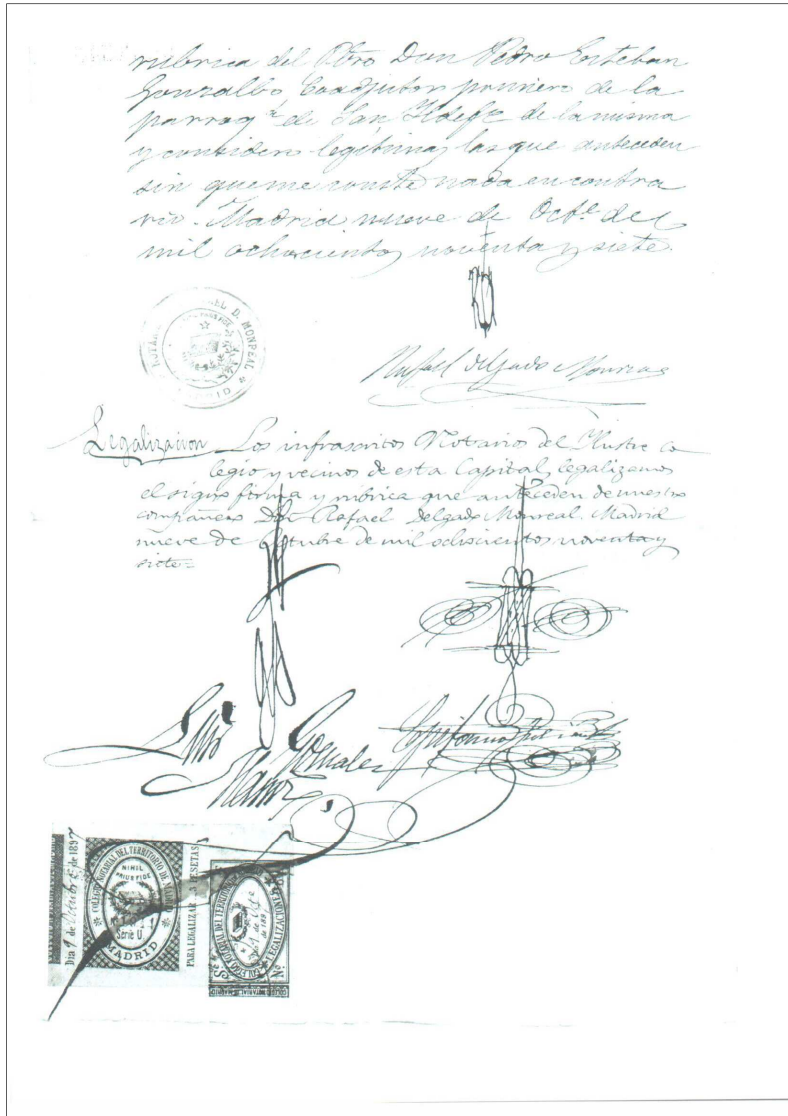 rubrica del Pbro Don Pedro Esteban
Gonzalbo Coadjutor primero de la
parroqª de San Ildefº de la misma
y considero legitimas las que anteceden
sin que me conste nada en contra
rio. Madrid nueve de Octe. de
mil ochocientos noventa y siete.
D. MONREAL
Rafael Delgado Monreal
Legalizacion Los infrascritos Notarios del Ilustre Co
legio y vecinos de esta Capital, legalizamos
el signo firma y rúbrica que anteceden de nuestro
compañero Don Rafael Delgado Monreal. Madrid
nueve de Octubre de mil ochocientos noventa y
siete=
Luis Gonzalez
COLEGIO NOTARIAL DEL TERRITORIO DE
NIHIL
PRIUS FIDE
Serie
MADRID
Dia 9 de Octubre de 1897
PARA LEGALIZAR 3 PESETAS
COLEGIO NOTARIAL DEL TERRITORIO
LEGALIZACION
Nº